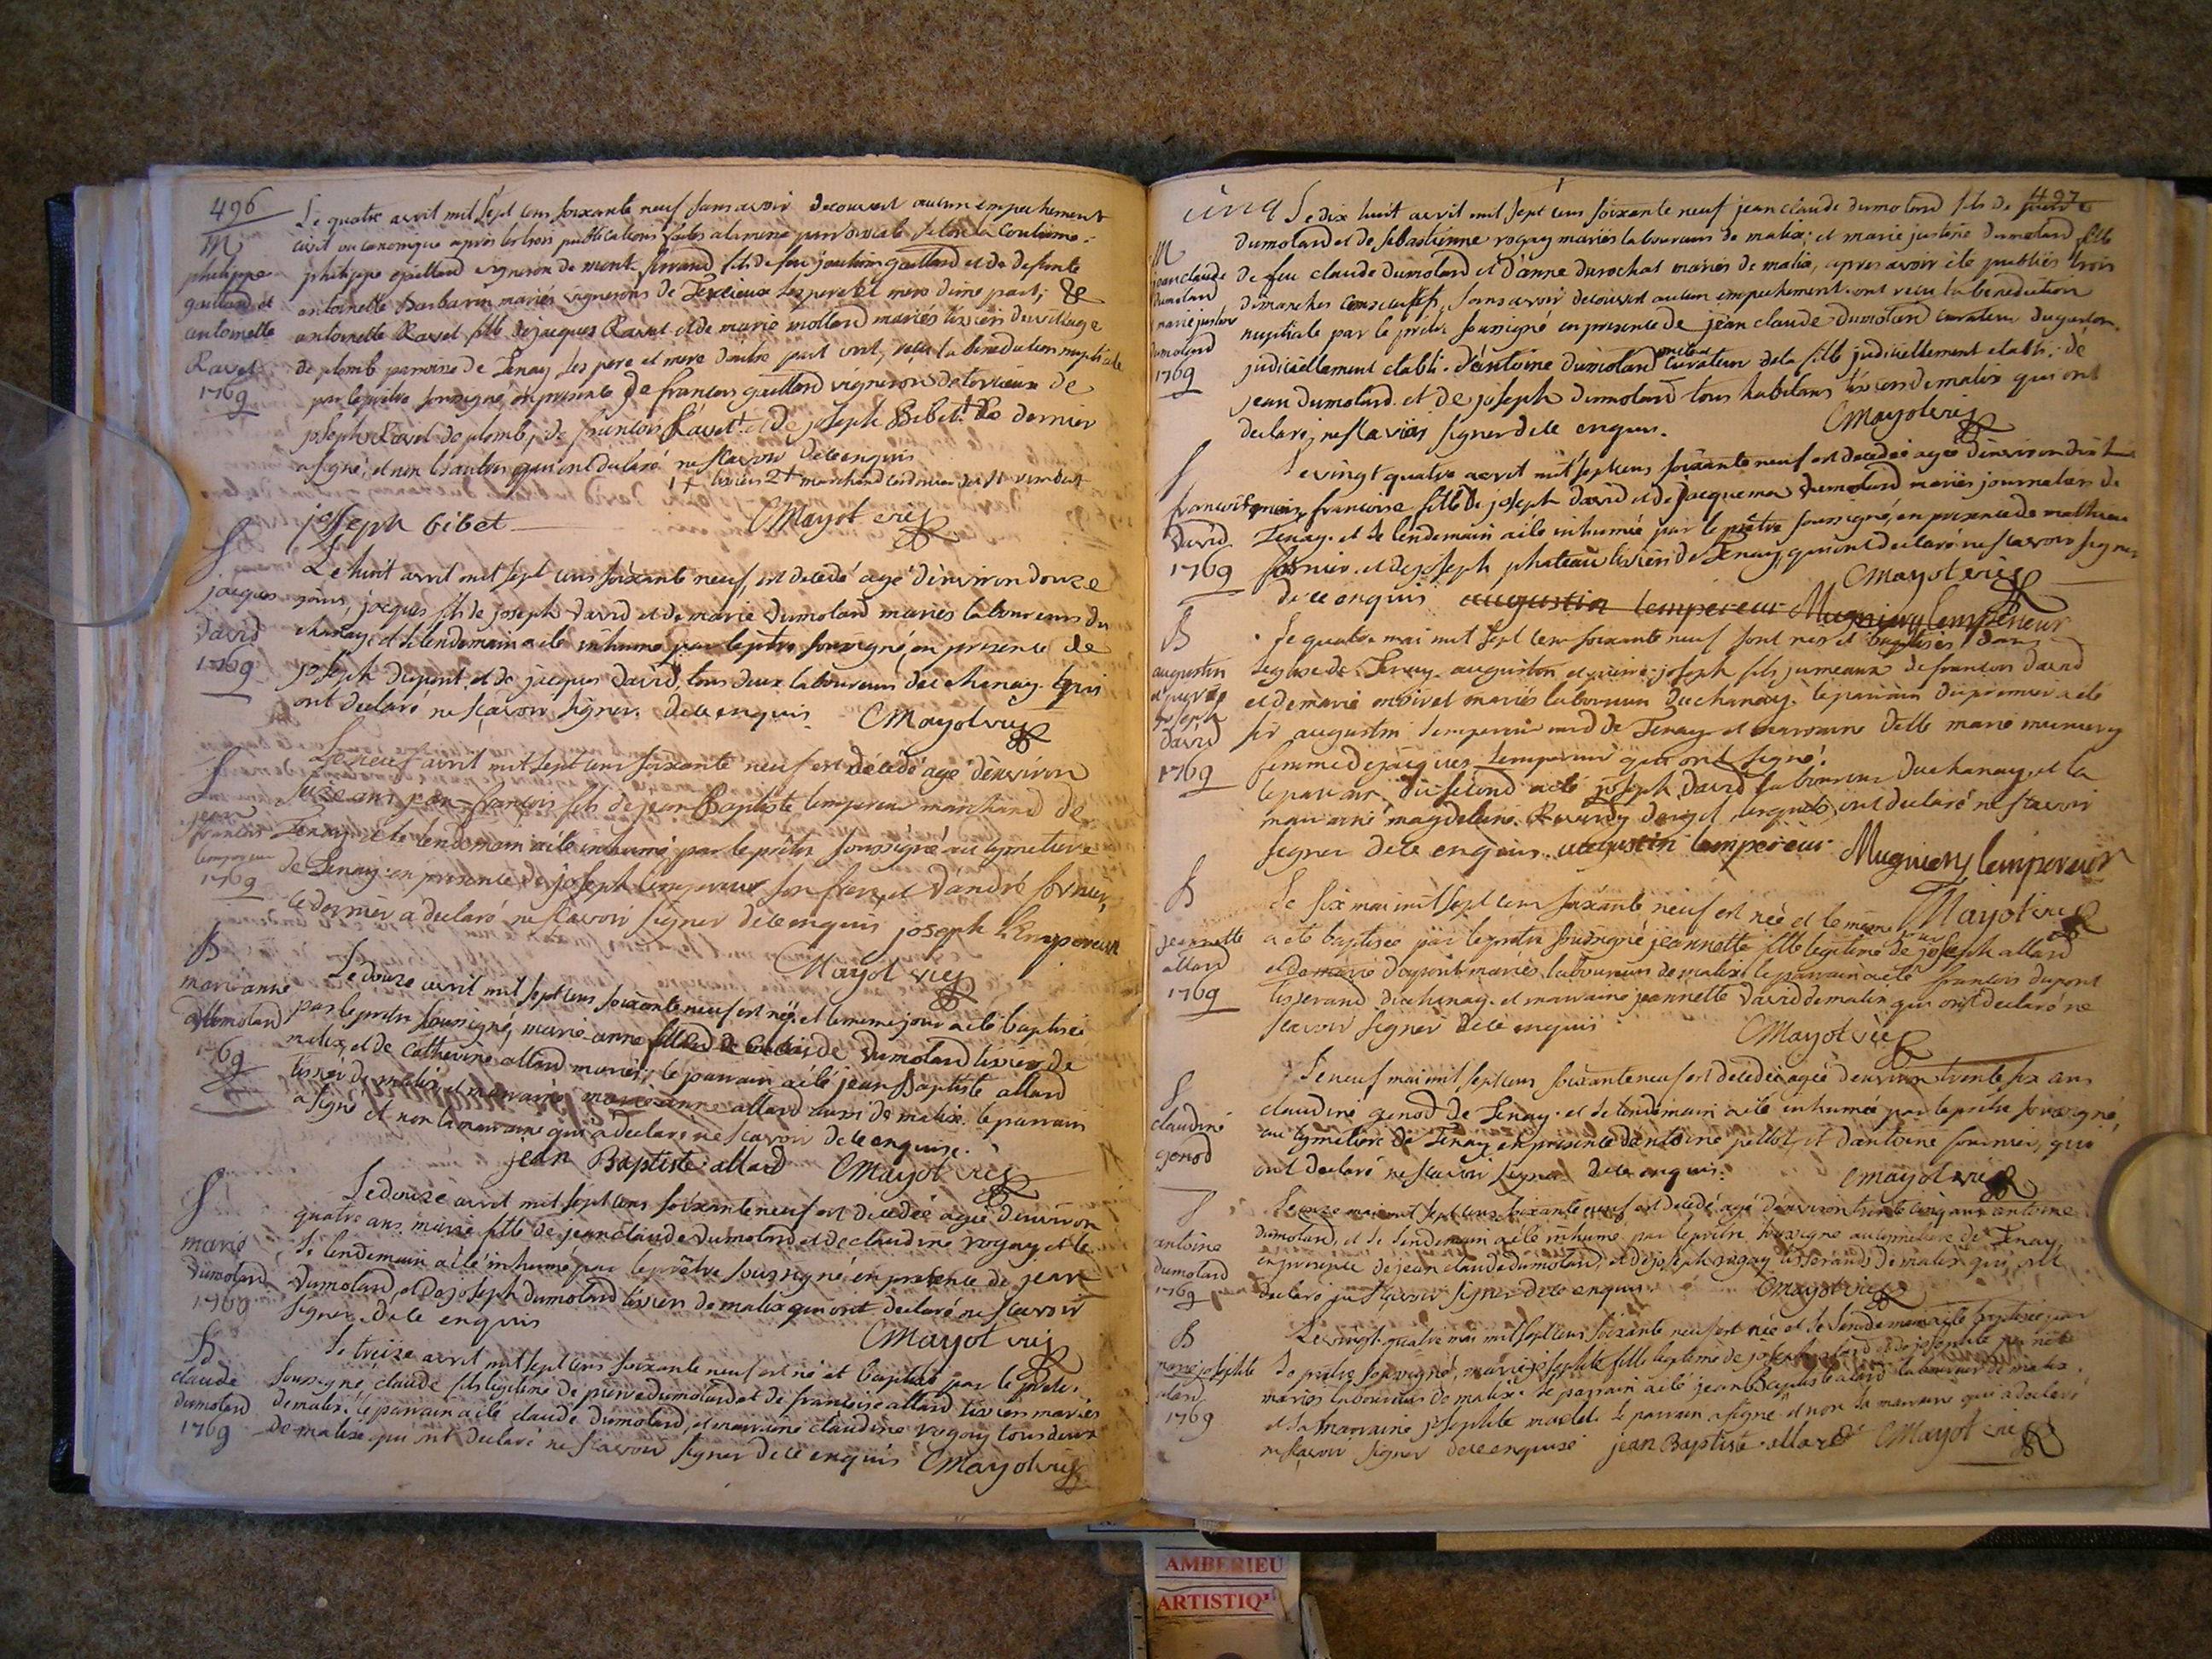 496
M
philippe
gaillard et
antoinette
Ravet
1769
Le quatre avril mil sept cens soixante neuf sans avoir decouvert aucun empechement
civil ou canonique apres les trois publications faites a la messe paroissiale selon la Coutume
philippe gaillard vigneron de mont ferrand fils de feu joachim gaillard et de defunte
antoinette barbarin mariés vignerons de Torcieux ses pere et mere d'une part; &
antoinette Ravet fille de jacques Ravet et de marie mollard mariés tixiers du village
de plomb paroisse de Tenay ses pere et mere d'autre part ont reçu la benediction nuptiale
par le prêtre soussigné, en presence de francois gaillard vigneron de torcieux de
joseph Ravet de plomb, de francois Ravet + et de joseph Bibet + Le dernier
a signé, et non les autres qui ont declaré ne scavoir de ce enquis
1+ tixier 2+ marchand
joseph bibet Mayot vic
S
jacques
david
1769
Le huit avril mil sept cens soixante neuf est decedé agé d'environ douze
jours, jacques fils de joseph David et de marie Dumolard mariés laboureurs du
chanay, et le lendemain a été inhumé par le prêtre soussigné, en presence de
joseph dupont et de jacques David, tous deux laboureurs du chanay qui
ont declaré ne scavoir signer de ce enquis Mayot vic
S
jean
francois
lempereur
1769
Le neuf avril mil sept cens soixante neuf est décédé agé d'environ
seize ans jean-françois fils de jean Baptiste lempereur marchand de
Tenay, et le lendemain a été inhumé par le prêtre soussigné au cymetiere
de Tenay en presence de joseph lempereur son frere, et d'andré fornier,
ce dernier a declaré ne scavoir signer de ce enquis joseph LEmpereur
Mayot vic
B
marie anne
dumolard
69
Le douze avril mil sept cens soixante neuf est née et le meme jour a été baptisée
par le pretre soussigné, marie-anne fille de Claude Dumolard tixier de
malix, et de Catherine allard mariés; le parrain a été jean Baptiste allard
tixier de malix, et marraine marie anne allard aussi de malix. le parrain
a signé et non la marraine qui a declaré ne scavoir de ce enquise.
jean Baptiste allard Mayot vic
S
marie
Dumolard
1769
Le douze avril mil sept cens soixante neuf est décédée agée d'environ
quatre ans marie fille de jean claude Dumolard et de claudine rogay et le
lendemain a été inhumée par le prêtre soussigné en presence de jean
Dumolard, et de joseph dumolard tixiers de malix qui ont declaré ne scavoir
signer de ce enquis
Mayot vic
B
claude
dumolard
1769
Le treize avril mil sept cens soixante neuf est né et baptisé par le prêtre
soussigné claude fils legitime de pierre dumolard et de francoise allard tixiers mariés
de malix. le parrain a été claude Dumolard, et marraine claudine rogay tous deux
de malix qui ont declaré ne scavoir signer de ce enquis Mayot vic
497
cinq
M
jean claude
Dumolard
marie justine
dumolard
1769
Le dix huit avril mil sept cens soixante neuf jean claude dumolard fils de
Dumolard et de sebastienne rogay mariés laboureurs de malix; et marie justine dumolard fille
de feu claude dumolard et d'anne durochat mariés de malix, apres avoir été publiés trois
dimanches consecutifs, sans avoir decouvert aucun empechement ont reçu la benediction
nuptiale par le prêtre soussigné en presence de jean claude dumolard curateur du garcon
judiciellement etabli. d'antoine dumolard curateur de la fille judiciellement etabli; de
jean dumolard et de joseph dumolard tous habitans tixiers de malix qui ont
declaré ne scavoir signer de ce enquis. Mayot vic
S
francoise
David
1769
Le vingt quatre avril mil sept cens soixante neuf est decedée agée d'environ
mois, francoise fille de joseph david et de jacquema Dumolard mariés journaliers de
Tenay. et le lendemain a été inhumée par le prêtre soussigné, en presence de mathieu
fornier et de joseph phateau tixier de Tenay, qui ont declaré ne scavoir signer
de ce enquis augustin lempereur Mugniery lempereur Mayot vic
B
augustin
et pierre
joseph
david
1769
Le quatre mai mil sept cens soixante neuf sont nés et baptisés dans
l'eglise de Tenay, augustin et pierre-joseph fils jumeaux de francois David
et de marie mariés laboureurs du chanay. le parrain du premier a été
sr augustin lempereur md de Tenay et marraine delle marie muniery
femme de jacques lempereur qui ont signé.
le parrain du second a été joseph David laboureur du chanay, et la
marraine magdelaine Ravety lesquels ont declaré ne scavoir
signer de ce enquis. augustin lempereur Mugniery lempereur
Mayot vic
B
jeannette
allard
1769
Le six mai mil sept cens soixante neuf est née et le meme jour
a été baptisée par le prêtre soussigné jeannette fille legitime de joseph allard
et de marie dupont mariés laboureurs de malix. le parrain a été francois dupont
tisserand du chanay. et marraine jeannette David de malix qui ont declaré ne
scavoir signer de ce enquis Mayot vic
S
claudine
genod
Le neuf mai mil sept cens soixante neuf est decedée agée d'environ trente six ans
claudine genod de Tenay. et le lendemain a été inhumée par le prêtre soussigné,
au cymetiere de Tenay en presence d'antoine pellot, et d'antoine fournier, qui
ont declaré ne scavoir signer de ce enquis. Mayot vic
S
antoine
dumolard
1769
Le onze mai mil sept cens soixante neuf est decedé agé d'environ trente cinq ans antoine
Dumolard, et le lendemain a été inhumé par le prêtre soussigné au cymetiere de Tenay
en presence de jean claude dumolard, et de joseph rogay tisserands de malix qui ont
declaré ne scavoir signer de ce enquis Mayot vic
B
marie josephte
alard
1769
Le vingt-quatre mai mil sept cens soixante neuf est née et le lendemain a été baptisée par
le prêtre soussigné, marie josephte fille legitime de joseph alard et de josephte
mariés laboureurs de malix. le parrain a été jean Baptiste alard laboureur de malix.
et la marraine josephte. le parrain a signé et non la marraine qui a declaré
ne scavoir signer de ce enquise jean Baptiste allard Mayot vic
AMBERIEU
ARTISTIQ